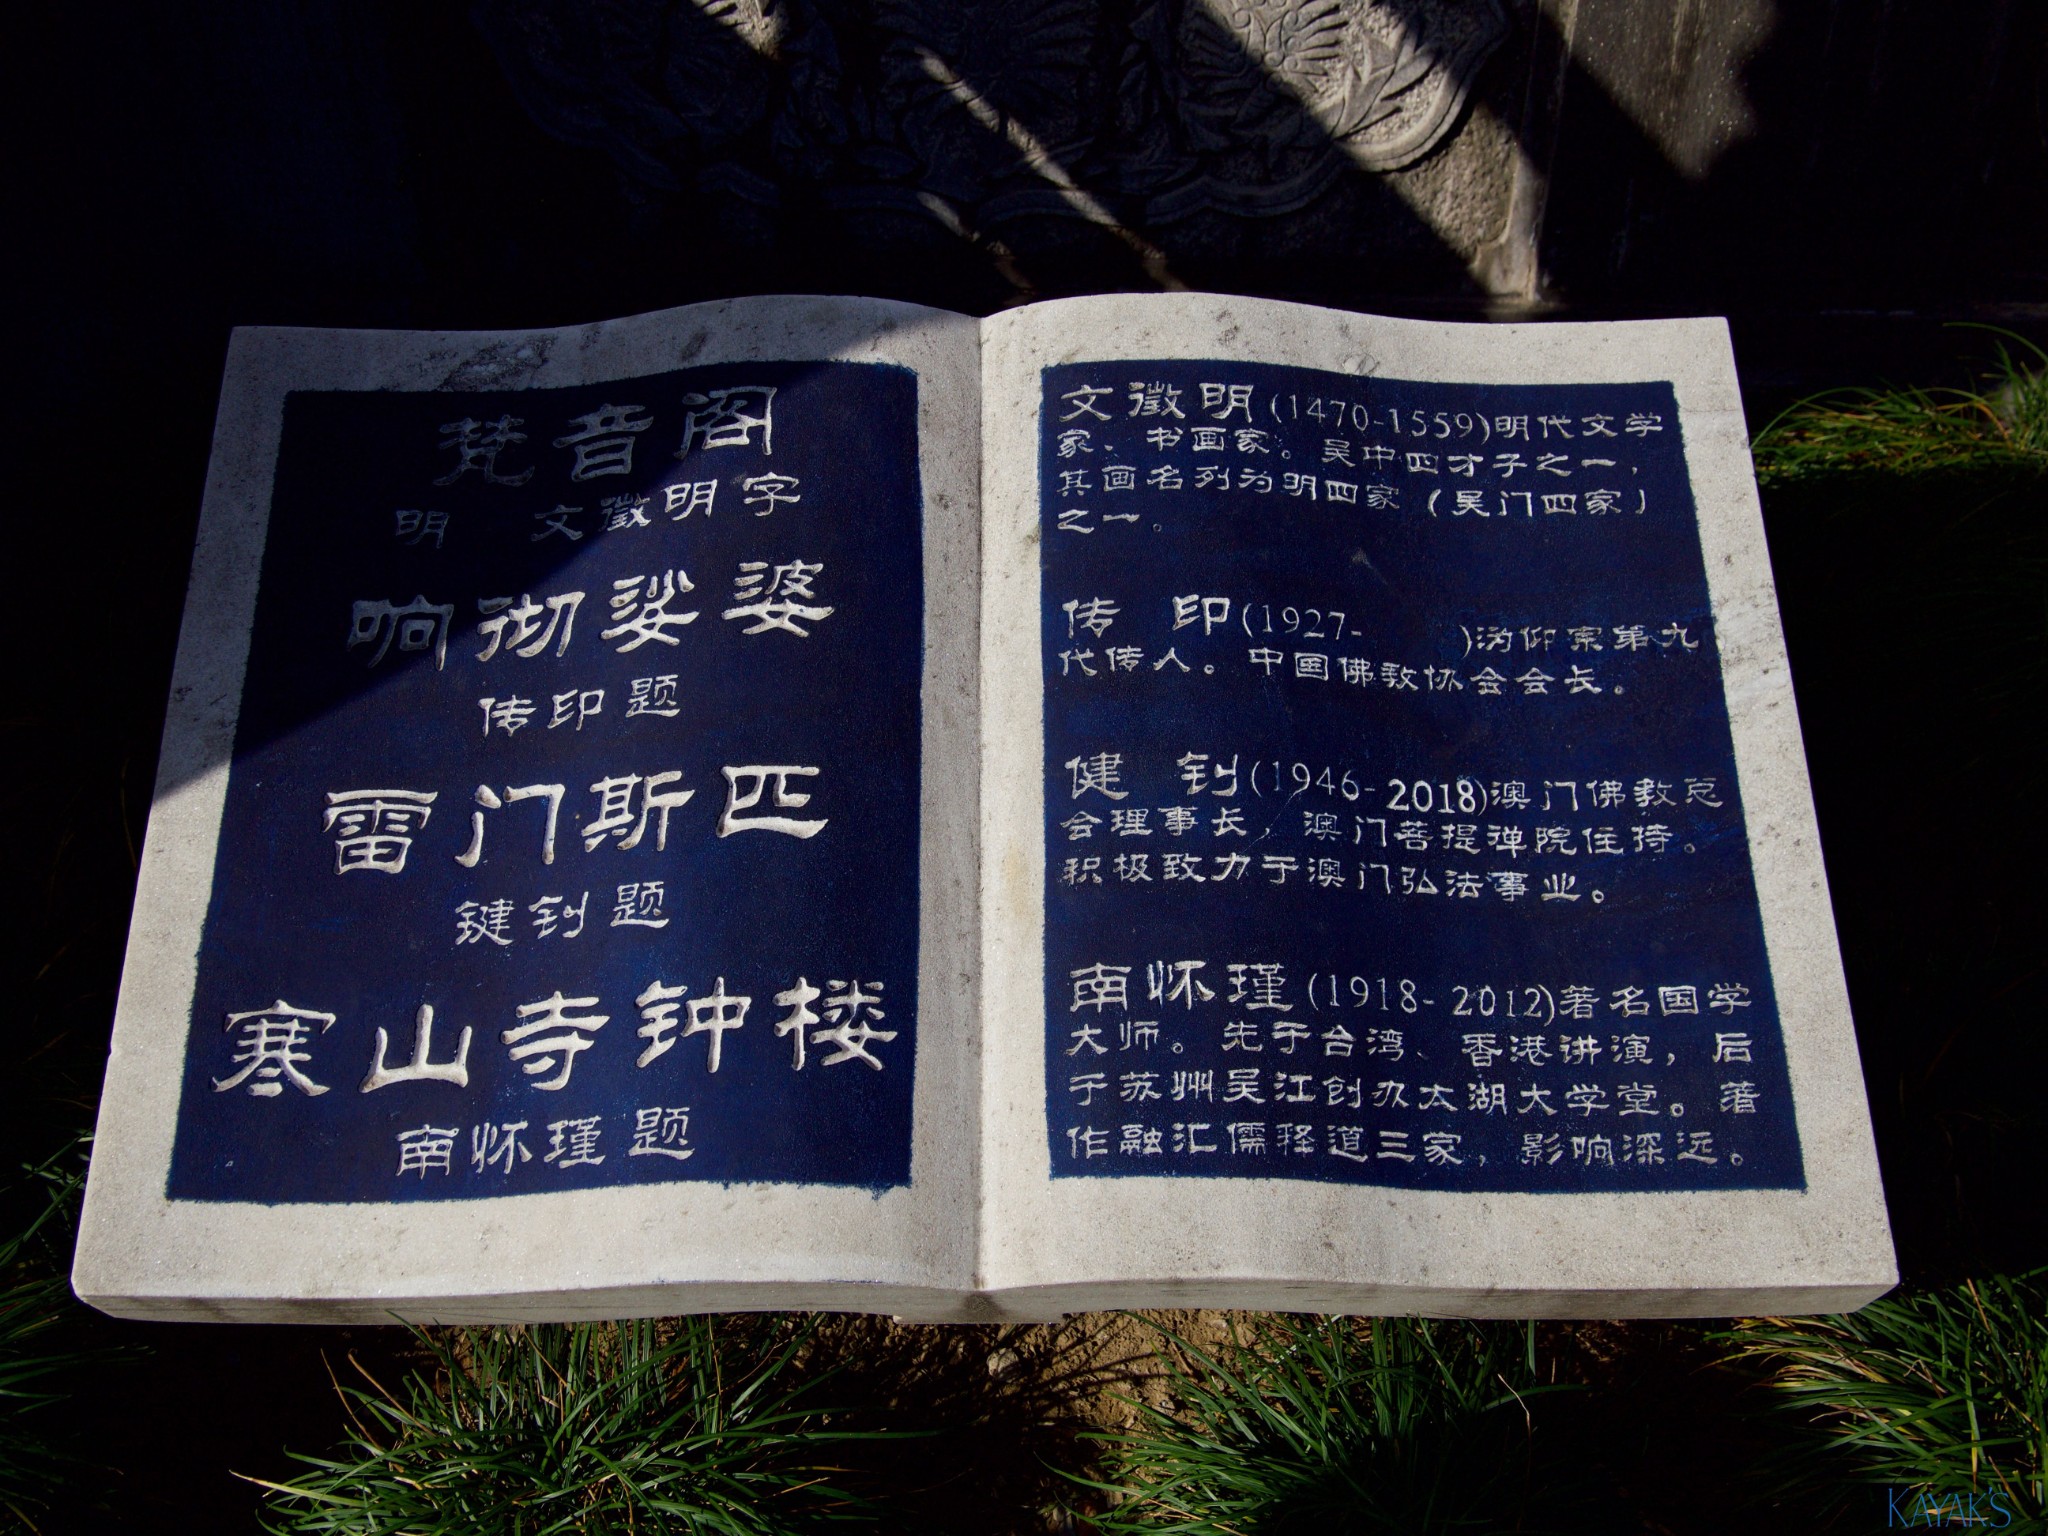 梵音阁
明 文徵明字
响彻娑婆
传印题
雷门斯匹
键钊题
寒山寺钟楼
南怀瑾题
文徵明(1470-1559)明代文学
家、书画家。吴中四才子之一,
其画名列为明四家（吴门四家）
之一。
传 印(1927- )沩仰宗第九
代传人。中国佛教协会会长。
健 钊(1946-2018)澳门佛教总
会理事长,澳门菩提禅院住持。
积极致力于澳门弘法事业。
南怀瑾(1918-2012)著名国学
大师。先于台湾、香港讲演,后
于苏州吴江创办太湖大学堂。著
作融汇儒释道三家,影响深远。
KAYAK'S